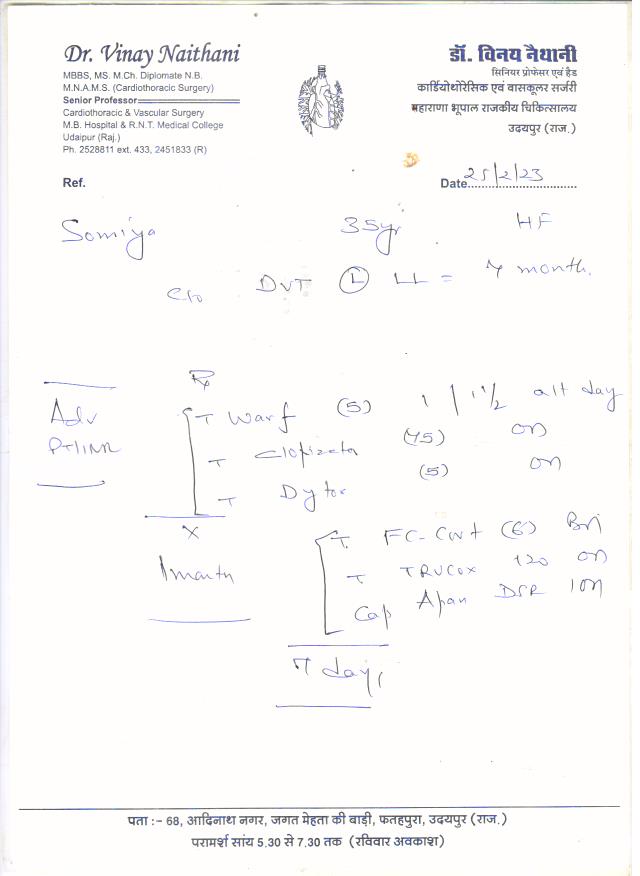 Dr. Vinay Naithani
MBBS, MS. M.Ch. Diplomate N.B.
M.N.A.M.S. (Cardiothoracic Surgery)
Senior Professor
Cardiothoracic & Vascular Surgery
M.B. Hospital & R.N.T. Medical College
Udaipur (Raj.)
Ph. 2528811 ext. 433, 2451833 (R)
डॉ. विनय नैथानी
सिनियर प्रोफेसर एवं हैड
कार्डियोथोरेसिक एवं वासकूलर सर्जरी
महाराणा भूपाल राजकीय चिकित्सालय
उदयपुर (राज.)
Ref.
Date 25/2/23
Somiya 35yr HF
C/o DVT (L) LL = month.
Rx
Adv
PT/INR
T Warf (5) 1 / 1 1/2 alt day
T (45) OD
T Dytor (5) OD
x
1 month
T. (6)
T 120 OD
Cap DSR 1OD
7 days
पता :- 68, आदिनाथ नगर, जगत मेहता की बाड़ी, फतहपुरा, उदयपुर (राज.)
परामर्श सांय 5.30 से 7.30 तक (रविवार अवकाश)